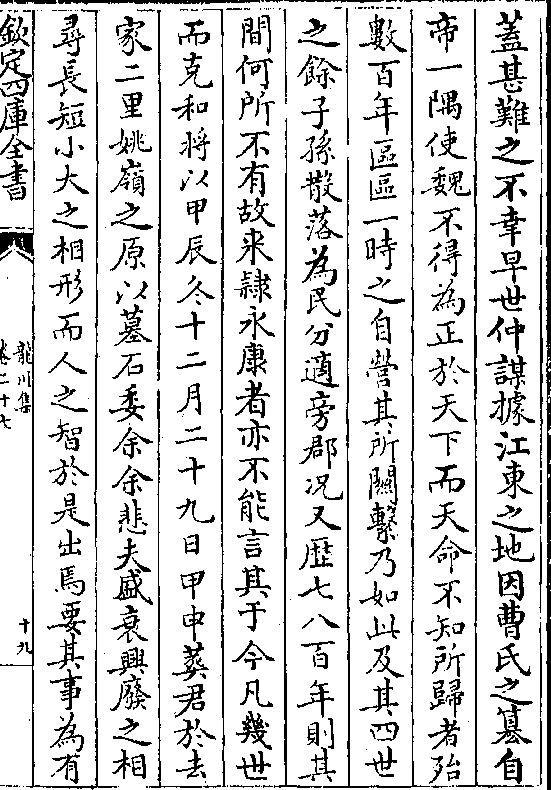 蓋甚難之不幸早世仲謀據江東之地因曹氏之簒自
帝一隅使魏不得為正於天下而天命不知所歸者殆
數百年區區一時之自營其所關繫乃如此及其四世
之餘子孫散落為民分適旁郡况又歴七八百年則其
間何所不有故来隷永康者亦不能言其于今凡幾世
而克和將以甲辰冬十二月二十九日甲申葬君於去
家二里姚嶺之原以墓石委余余悲夫盛衰興廢之相
尋長短小大之相形而人之智於是出焉要其事為有
欽定四庫全書
龍川集
卷二十七
十九